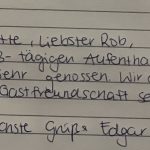 tte, Liebster Rob,
3-tägigen Aufentha
sehr genossen. Wir
Gastfreundschaft se
nste Grüße Edgar